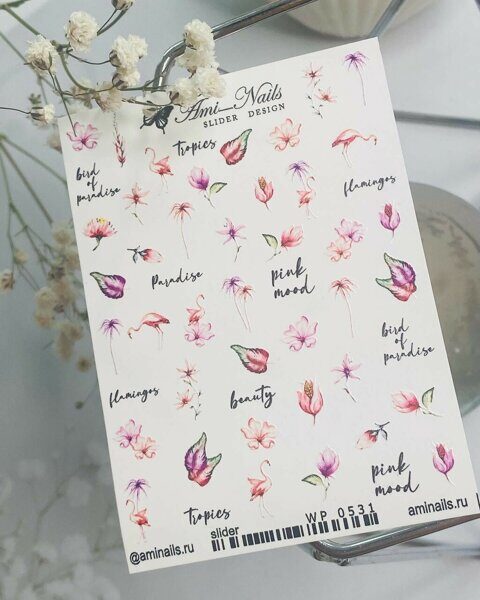 Ami_Nails
SLIDER DESIGN
Tropics
bird
of
paradise
flamingos
Paradise
pink
mood
bird
of
paradise
flamingos
beauty
pink
mood
Tropics
slider
WP 0531
@aminails.ru
aminails.ru